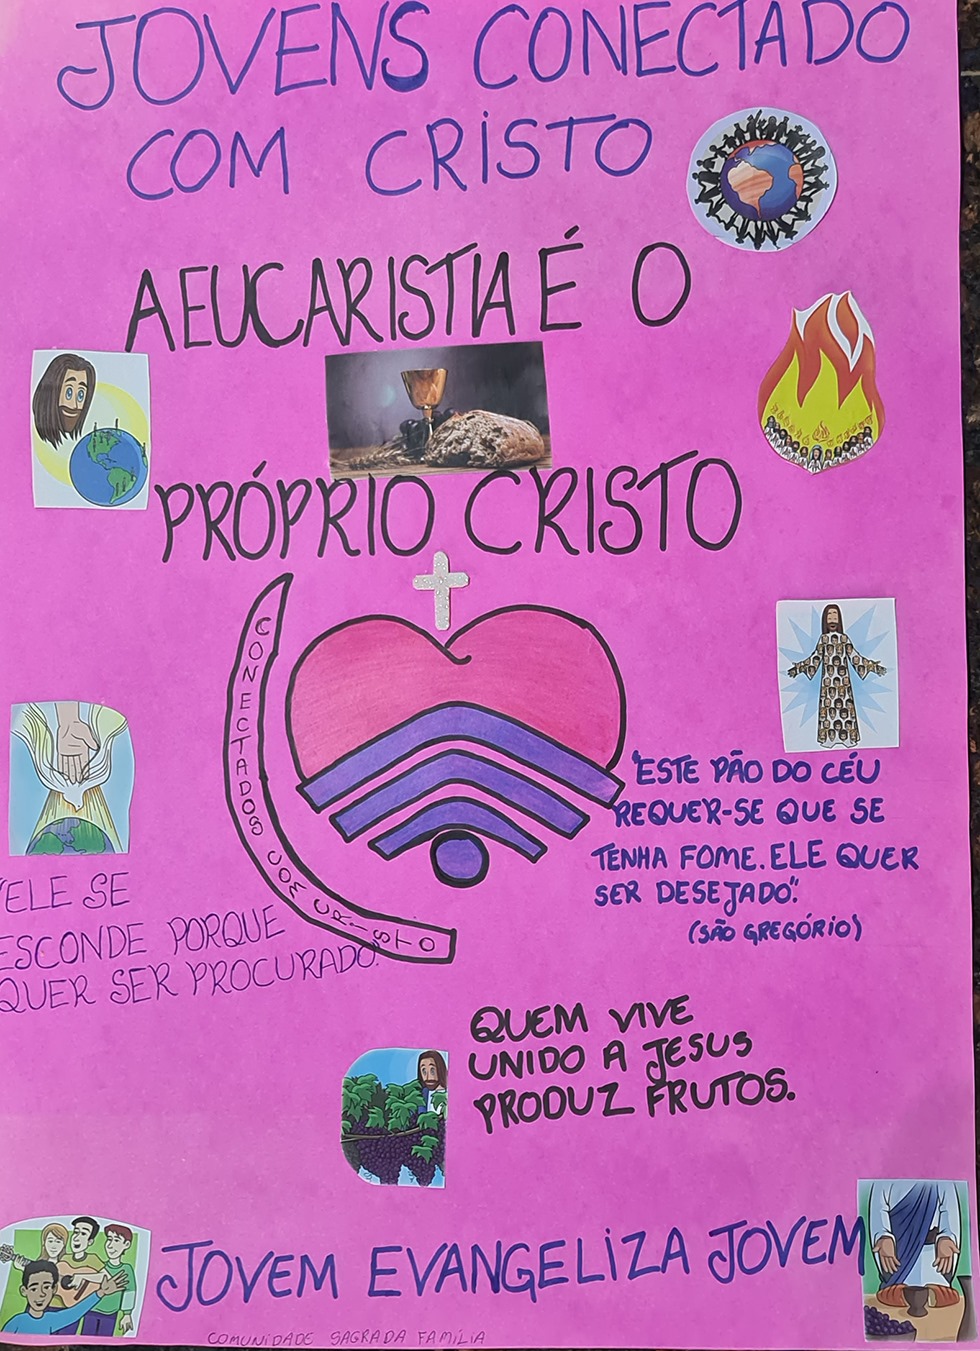 JOVENS CONECTADO
COM CRISTO
A EUCARISTIA É O
PRÓPRIO CRISTO
CONECTADOS COM CRISTO
"ESTE PÃO DO CÉU
REQUER-SE QUE SE
TENHA FOME. ELE QUER
SER DESEJADO".
(SÃO GREGÓRIO)
"ELE SE
ESCONDE PORQUE
QUER SER PROCURADO."
QUEM VIVE
UNIDO A JESUS
PRODUZ FRUTOS.
JOVEM EVANGELIZA JOVEM
COMUNIDADE SAGRADA FAMÍLIA